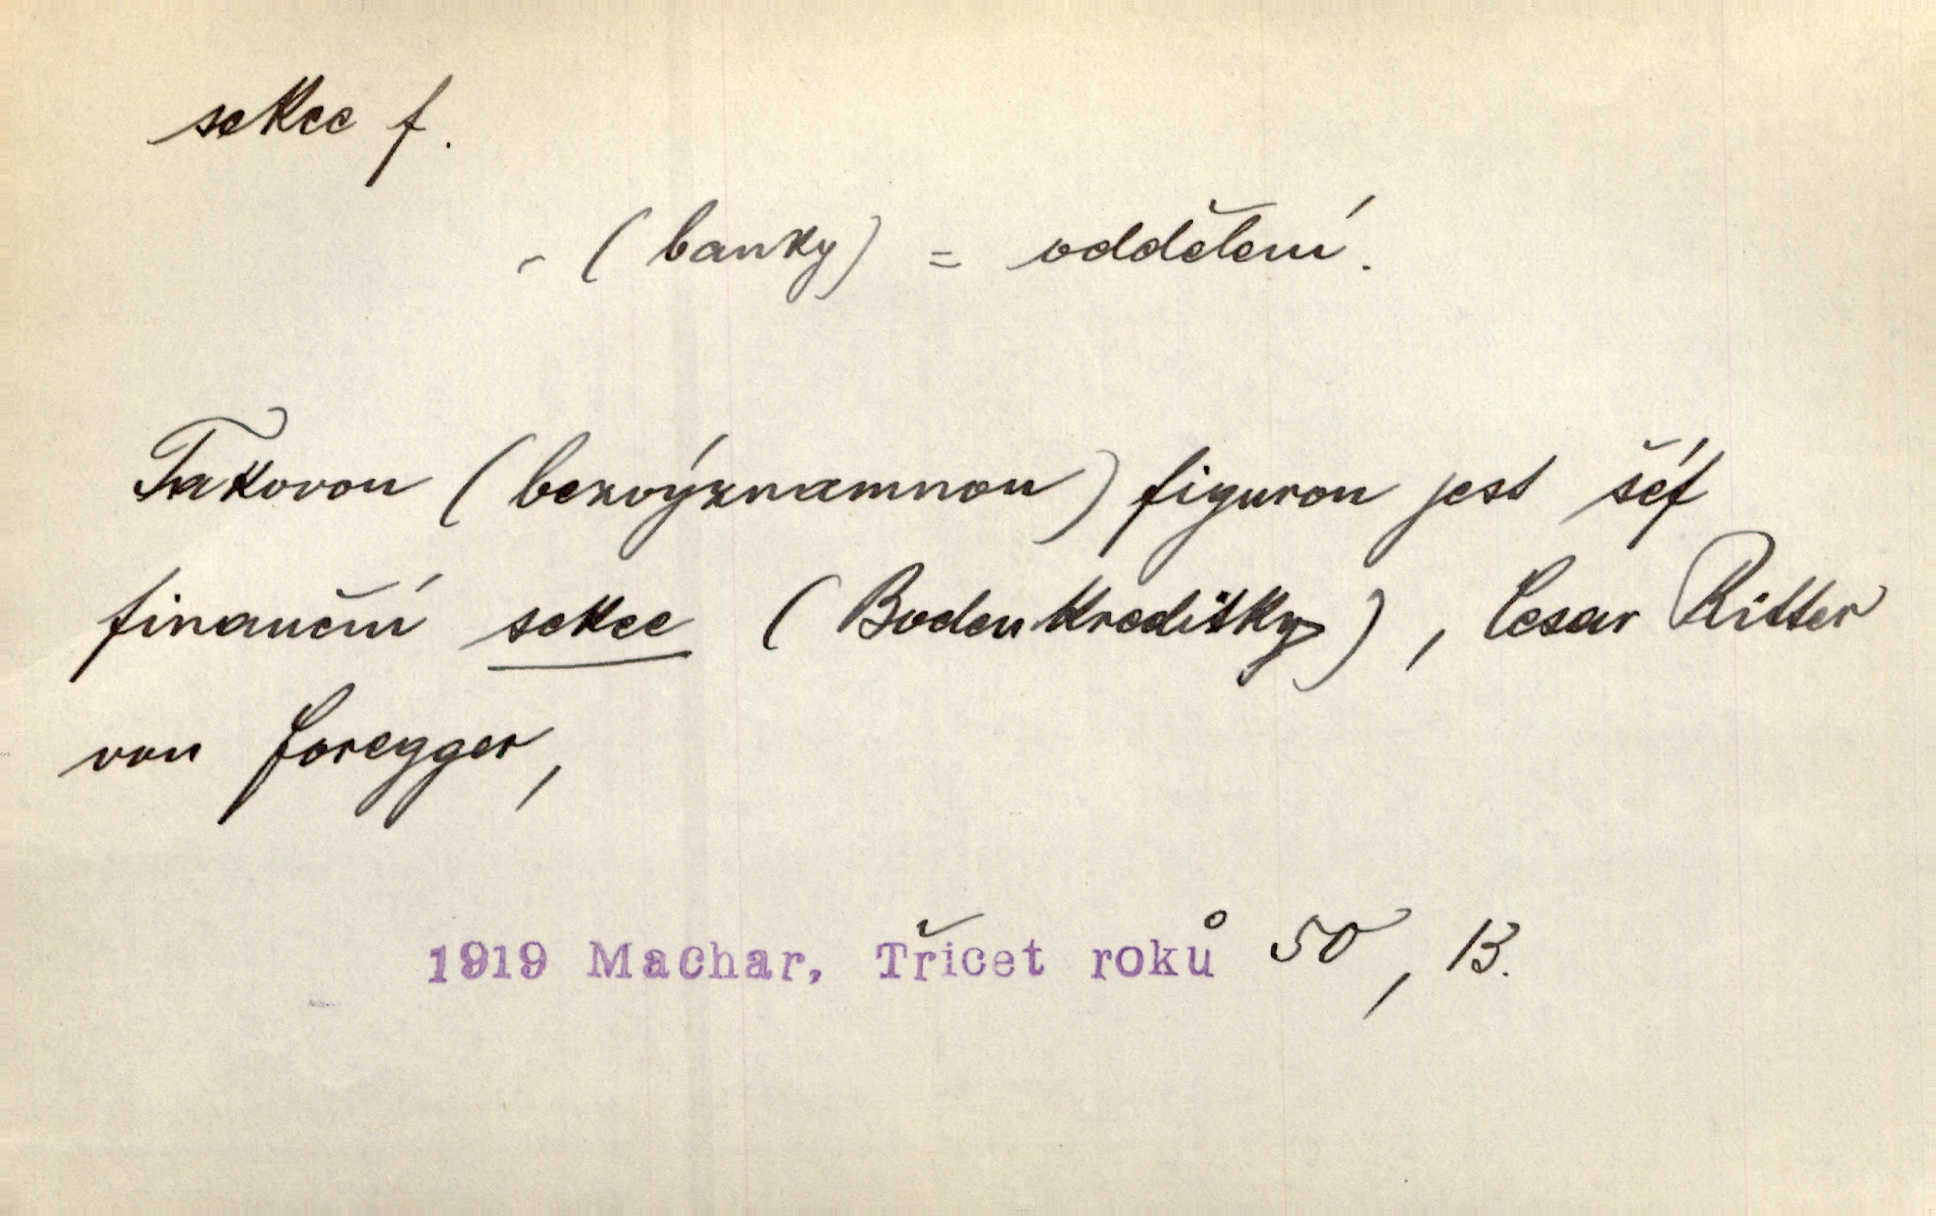 sekce f.
- (banky) = oddělení.
Takovou (bezvýznamnou) figurou jest šéf
finanční sekce (Bodenkreditky), Cesar Ritter
von Foregger,
1919 Machar, Třicet roků 50, 13.